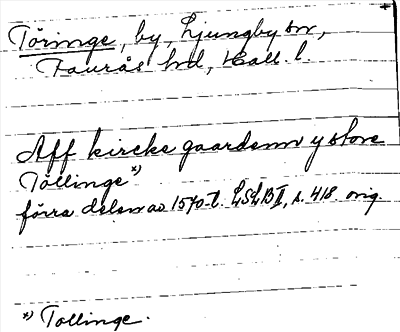 Töringe, by, Ljungby sn,
Faurås hd, Hall. l.
Aff kircke gaardenn y store
Töllinge *)
förra delen av 1570-t. LSLB II, s. 418. orig.
*) Tollinge.